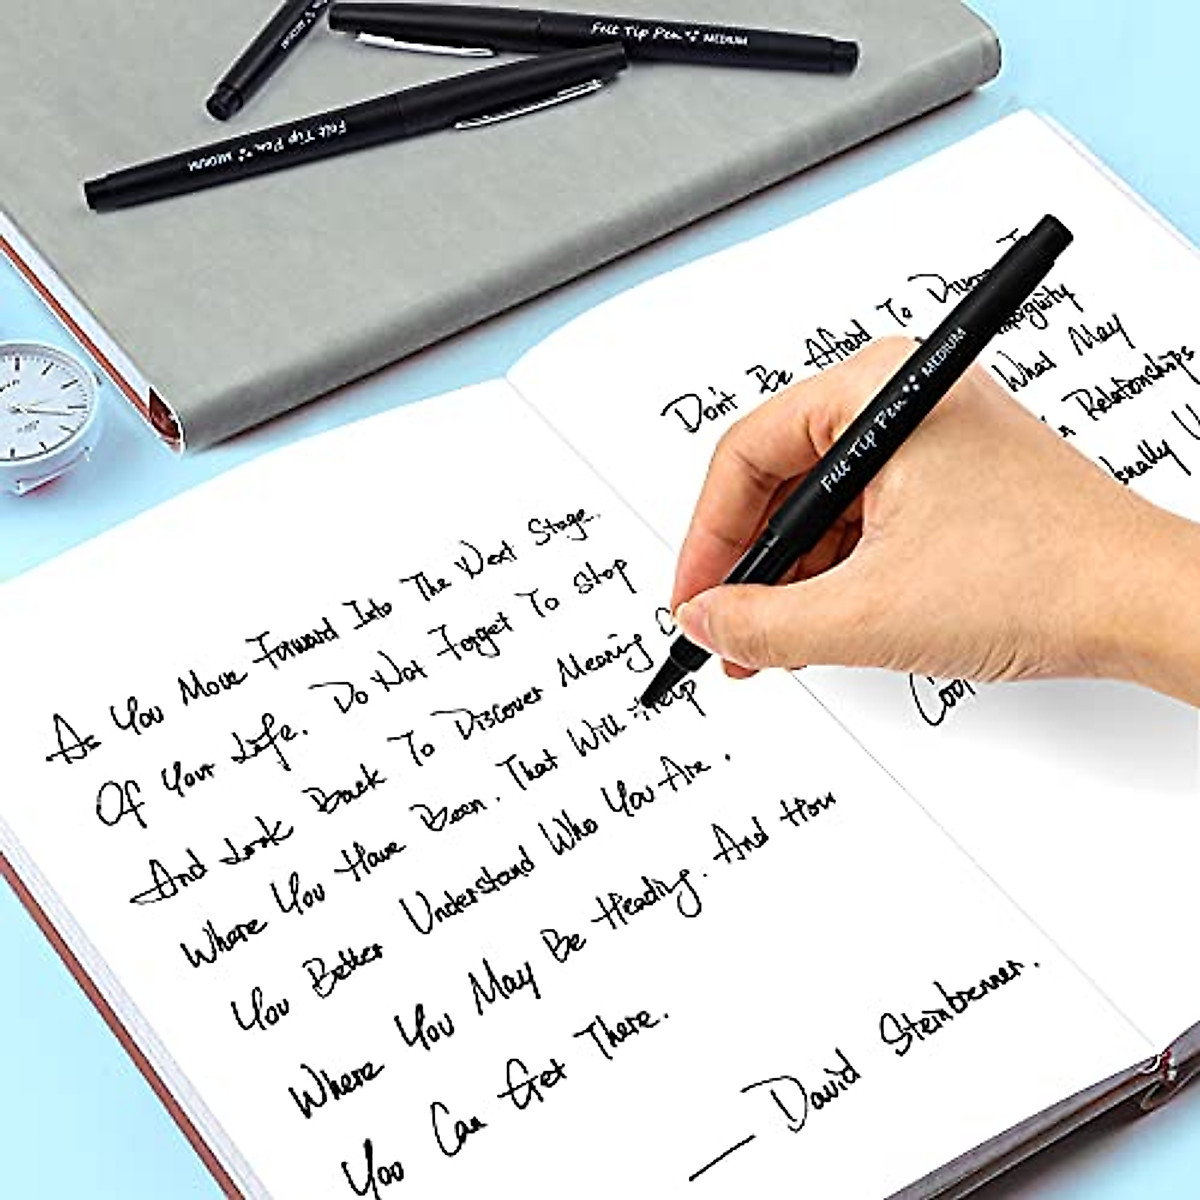 Felt Tip Pen MEDIUM
Felt Tip Pen MEDIUM
MEDIUM
Felt Tip Pen MEDIUM
Don't Be Afraid To
What May
Relationships
As You Move Forward Into The Next Stage.
Of Your Life. Do Not Forget To Stop
And Look Back To Discover Meaning
Where You Have Been. That Will Help
You Better Understand Who You Are.
Where You May Be Heading. And How
You Can Get There.
— David Steinbrenner.